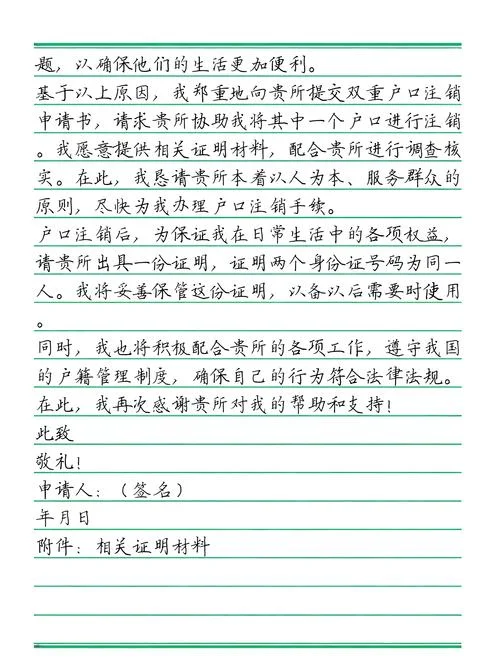 题，以确保他们的生活更加便利。
基于以上原因，我郑重地向贵所提交双重户口注销
申请书，请求贵所协助我将其中一个户口进行注销
。我愿意提供相关证明材料，配合贵所进行调查核
实。在此，我恳请贵所本着以人为本、服务群众的
原则，尽快为我办理户口注销手续。
户口注销后，为保证我在日常生活中的各项权益，
请贵所出具一份证明，证明两个身份证号码为同一
人。我将妥善保管这份证明，以备以后需要时使用
。
同时，我也将积极配合贵所的各项工作，遵守我国
的户籍管理制度，确保自己的行为符合法律法规。
在此，我再次感谢贵所对我的帮助和支持！
此致
敬礼！
申请人：（签名）
年月日
附件：相关证明材料